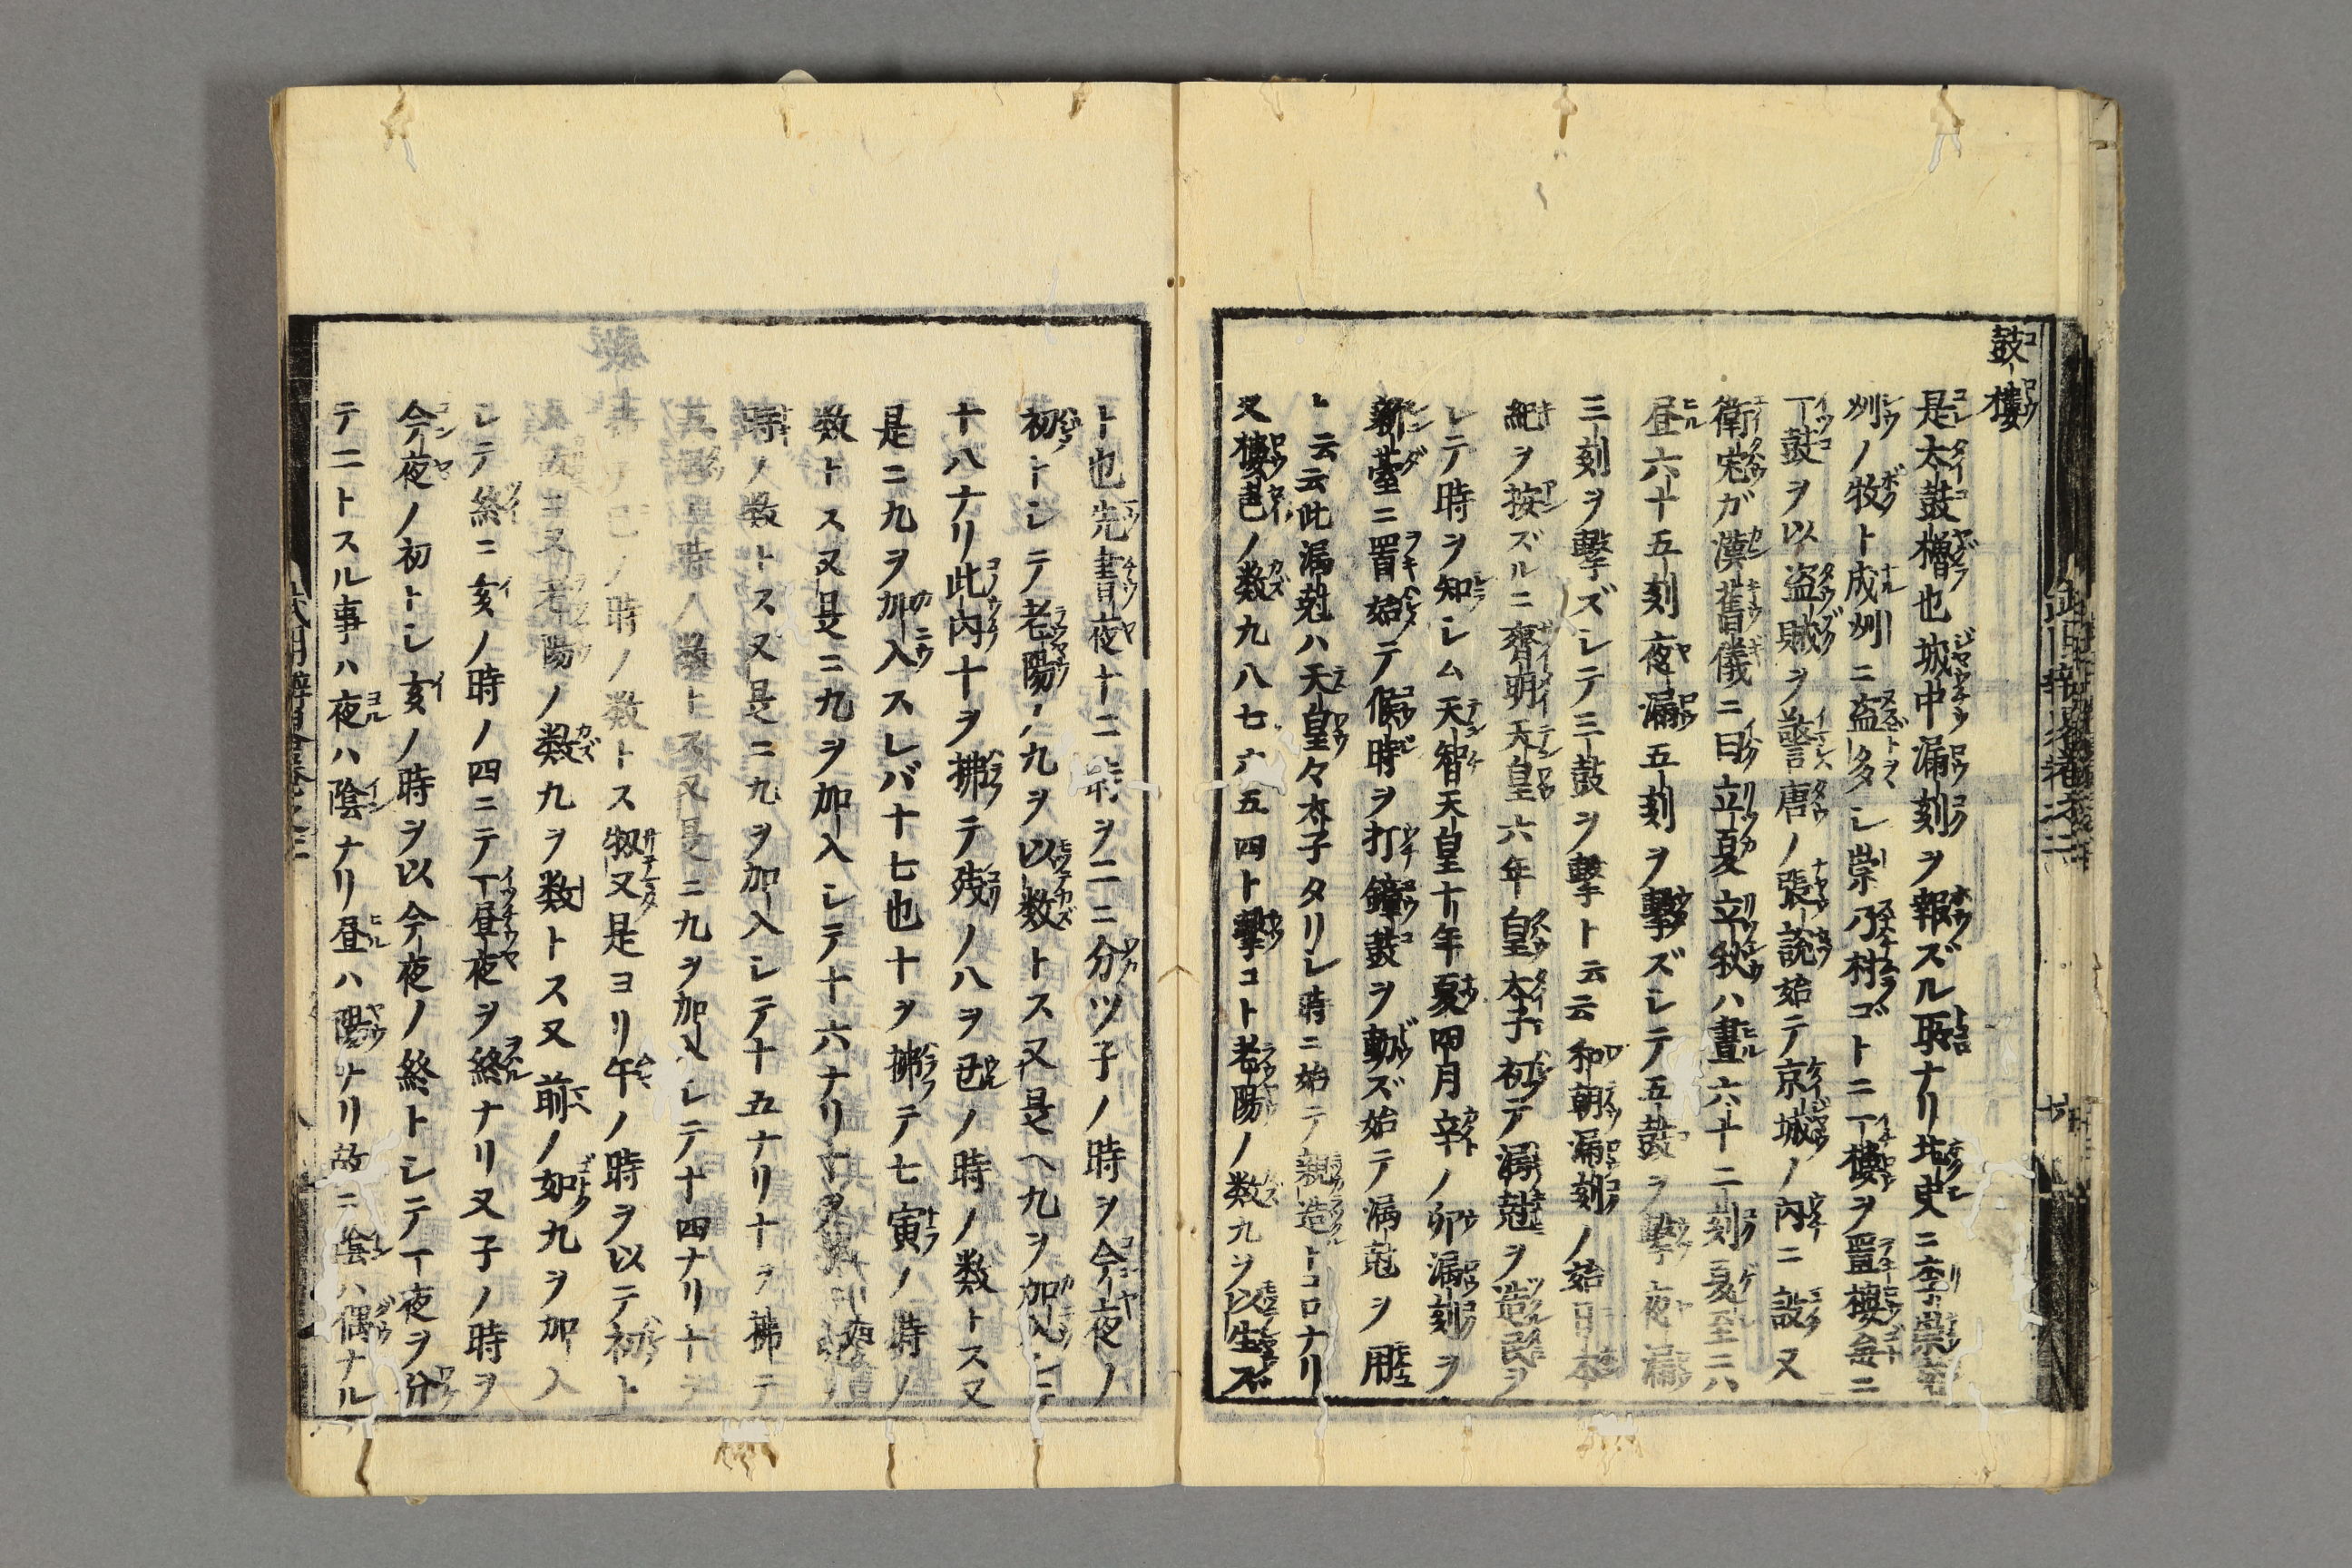 鼓樓
是太鼓櫓也城中漏刻ヲ報ズル所ナリ北史ニ李崇兗
州ノ牧ト成州ニ盗多シ崇乃村ゴトニ一樓ヲ置樓毎ニ
一鼓ヲ以盗賊ヲ警唐ノ張說始テ京城ノ內ニ設又
衛宏ガ漢舊儀ニ曰立夏立秋ハ晝六十二刻夏至ニハ
昼六十五刻夜漏五刻ヲ擊ズシテ五鼓ヲ擊夜漏
三刻ヲ擊ズシテ三鼓ヲ擊ト云云和朝漏刻ノ始日本
紀ヲ按ズルニ齊明天皇六年皇太子初テ漏尅ヲ造民ヲ
シテ時ヲ知シム天智天皇十年夏四月辛卯漏刻ヲ
新臺ニ置始テ候時ヲ打鐘鼓ヲ動ズ始テ漏尅ヲ用
ト云云此漏尅ハ天皇々太子タリシ時ニ始テ親造トコロナリ
又樓邑ノ数九八七六五四ト擊コト老陽ノ数九ヲ以生ズ
ト也先書夜十二時ヲ二ニ分ツ子ノ時ヲ今夜ノ
初トシテ老陽ノ九ヲ以数トス又是ヘ九ヲ加入シテ
十八ナリ此內十ヲ拂テ残ノ八ヲ丑ノ時ノ数トス又
是ニ九ヲ加入スレバ十七也十ヲ拂テ七寅ノ時ノ
数トス又是ニ九ヲ加入シテ十六ナリ十ヲ
時ノ数トス又是ニ九ヲ加入シテ十五ナリ十ヲ拂テ
五辰時ノ数トス又是ニ九ヲ加入シテ十四ナリ十ヲ
巳ノ時ノ数トス扨又是ヨリ午ノ時ヲ以テ初ト
又老陽ノ数九ヲ数トス又前ノ如九ヲ加入
シテ終ニ亥ノ時ノ四ニテ一昼夜ヲ終ナリ又子ノ時ヲ
今夜ノ初トシ亥ノ時ヲ以今夜ノ終トシテ一夜ヲ分
テ二トスル事ハ夜ハ陰ナリ昼ハ陽ナリ故ニ陰ハ偶ナル